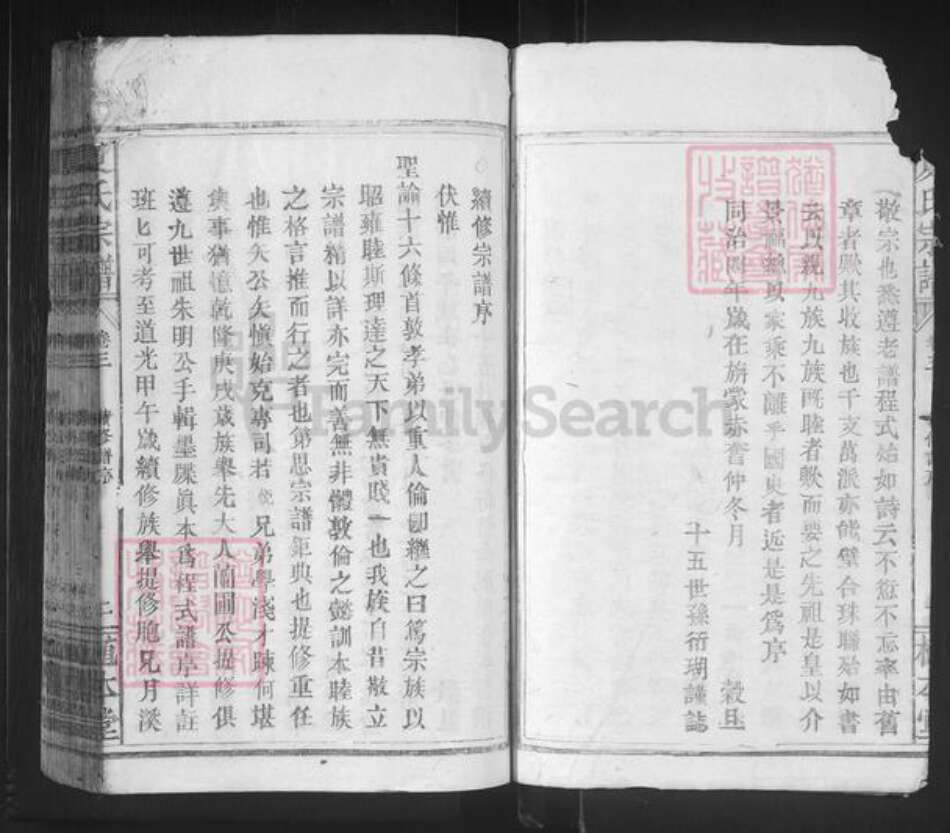 敬宗也悉遵老譜程式始如詩云不愆不忘率由舊
章者歟其收族也千支萬派亦能璧合珠聯殆如書
云以親九族九族既睦者歟而要之先祖是皇以介
景福總以家乘不離乎國史者近是是為序
同治四年歲在旃蒙赤奮仲冬月 穀旦
十五世孫衍瑚謹誌
氏宗譜
卷三
續修宗譜序
伏惟
聖諭十六條首敦孝弟以重人倫卽繼之曰篤宗族以
昭雍睦斯理達之天下無貴賤一也我族自昔敬立
宗譜精以詳亦完而善無非體敦倫之懿訓本睦族
之格言推而行之者也第思宗譜鉅典也提修重任
也惟矢公矢慎始克專司若 兄弟學淺才疎何堪
與事猶憶乾隆庚戌歲族舉先大人蘭圃公提修俱
遵九世祖朱明公手輯墨牒眞本爲程式譜序詳註
班匕可考至道光甲午歲續修族舉提修胞兄月溪
氏宗譜
卷三
續修譜序
二
本堂
FamilySearch